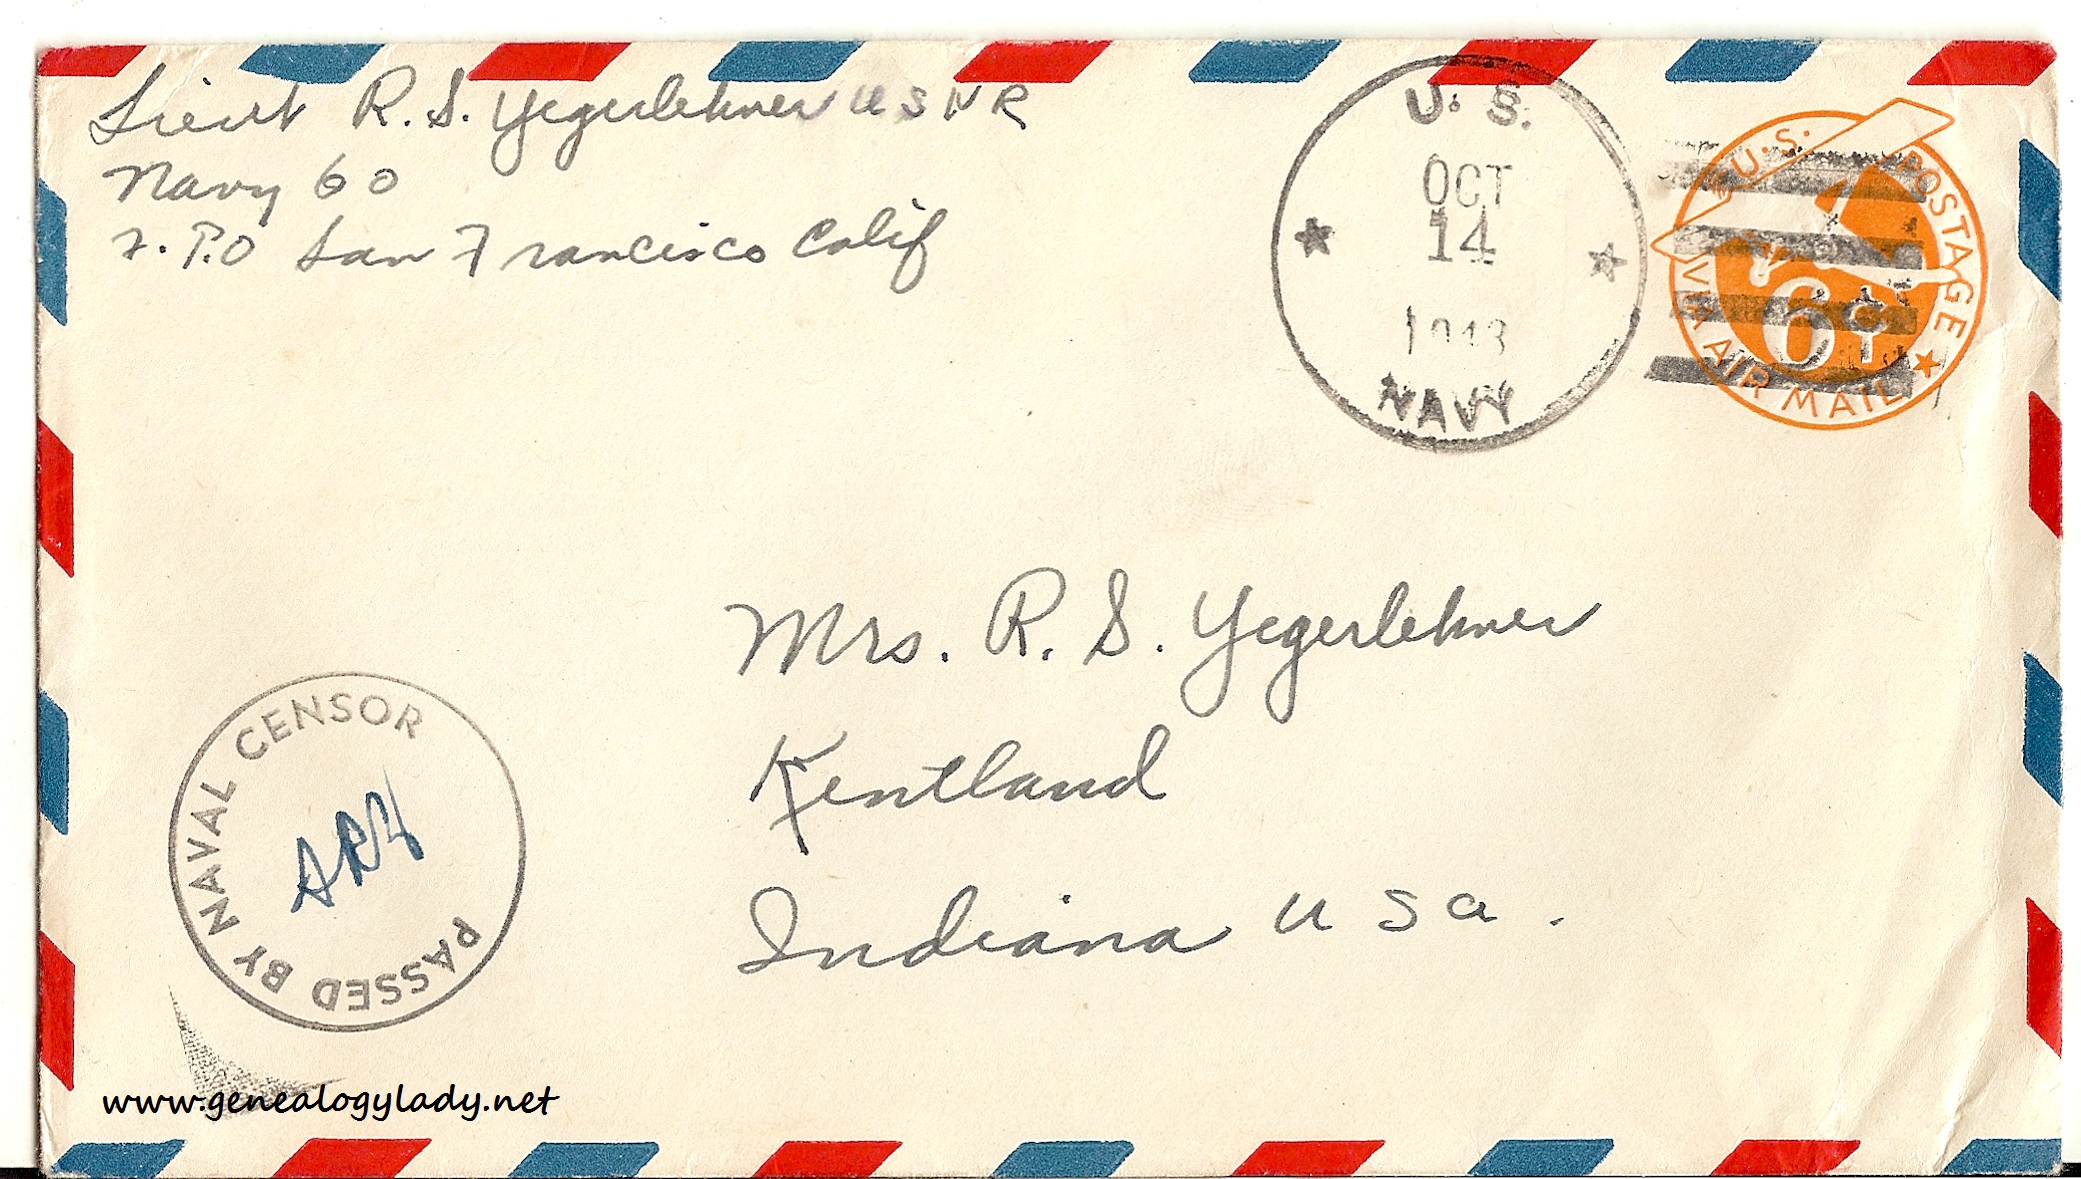 Lieut R. S. Yegerlehner USNR
Navy 60
F.P.O San Francisco Calif
U. S.
OCT
14
1943
NAVY
U.S. POSTAGE
6¢
VIA AIR MAIL
Mrs. R. S. Yegerlehner
Kentland
Indiana USa.
PASSED BY NAVAL CENSOR
www.genealogylady.net